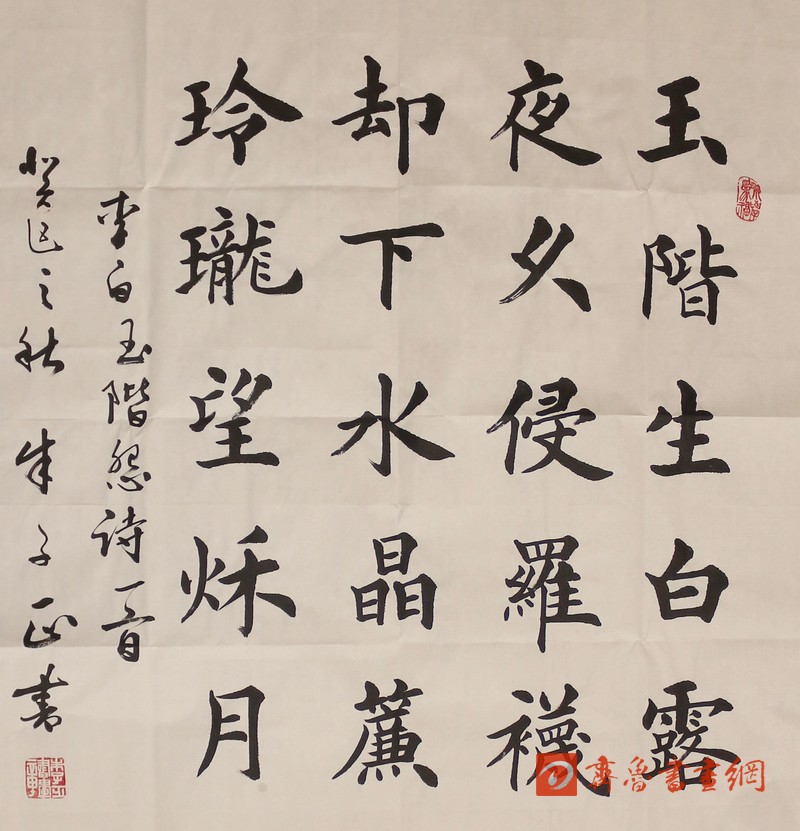 玉階生白露
夜久侵羅襪
却下水晶簾
玲瓏望烁月
李白玉階怨詩一首
癸巳之秋 朱子正書
齊魯書畫網